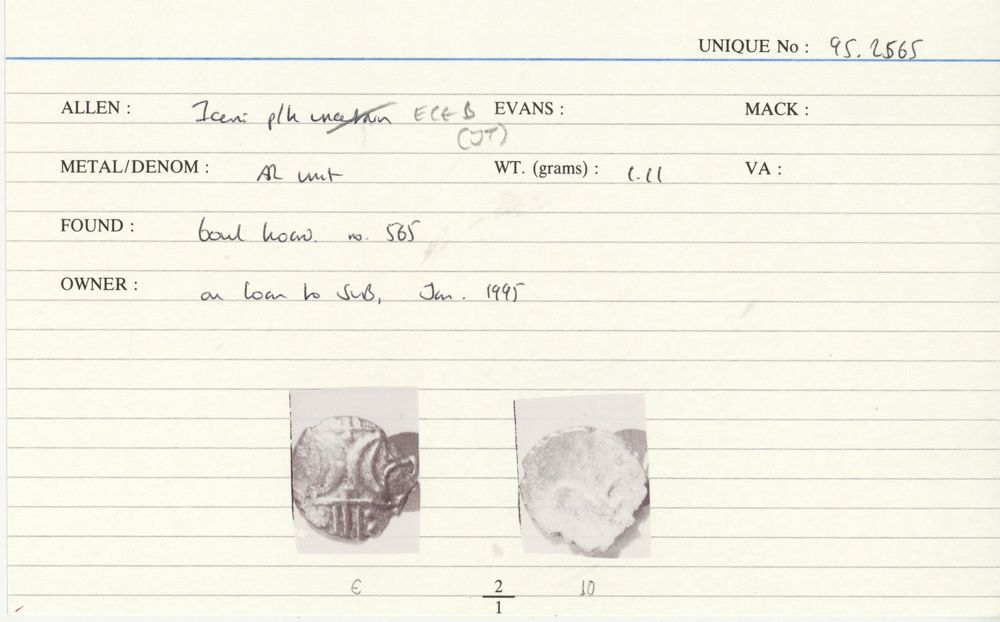 UNIQUE No : 95.2565
ALLEN : Iceni p/h uncertain ECE B EVANS : MACK :
(JT)
METAL/DENOM : AR unit WT. (grams) : 1.11 VA :
FOUND : bowl hoard. no. 565
OWNER : on loan to SUB, Jan. 1995
E 2 10
1